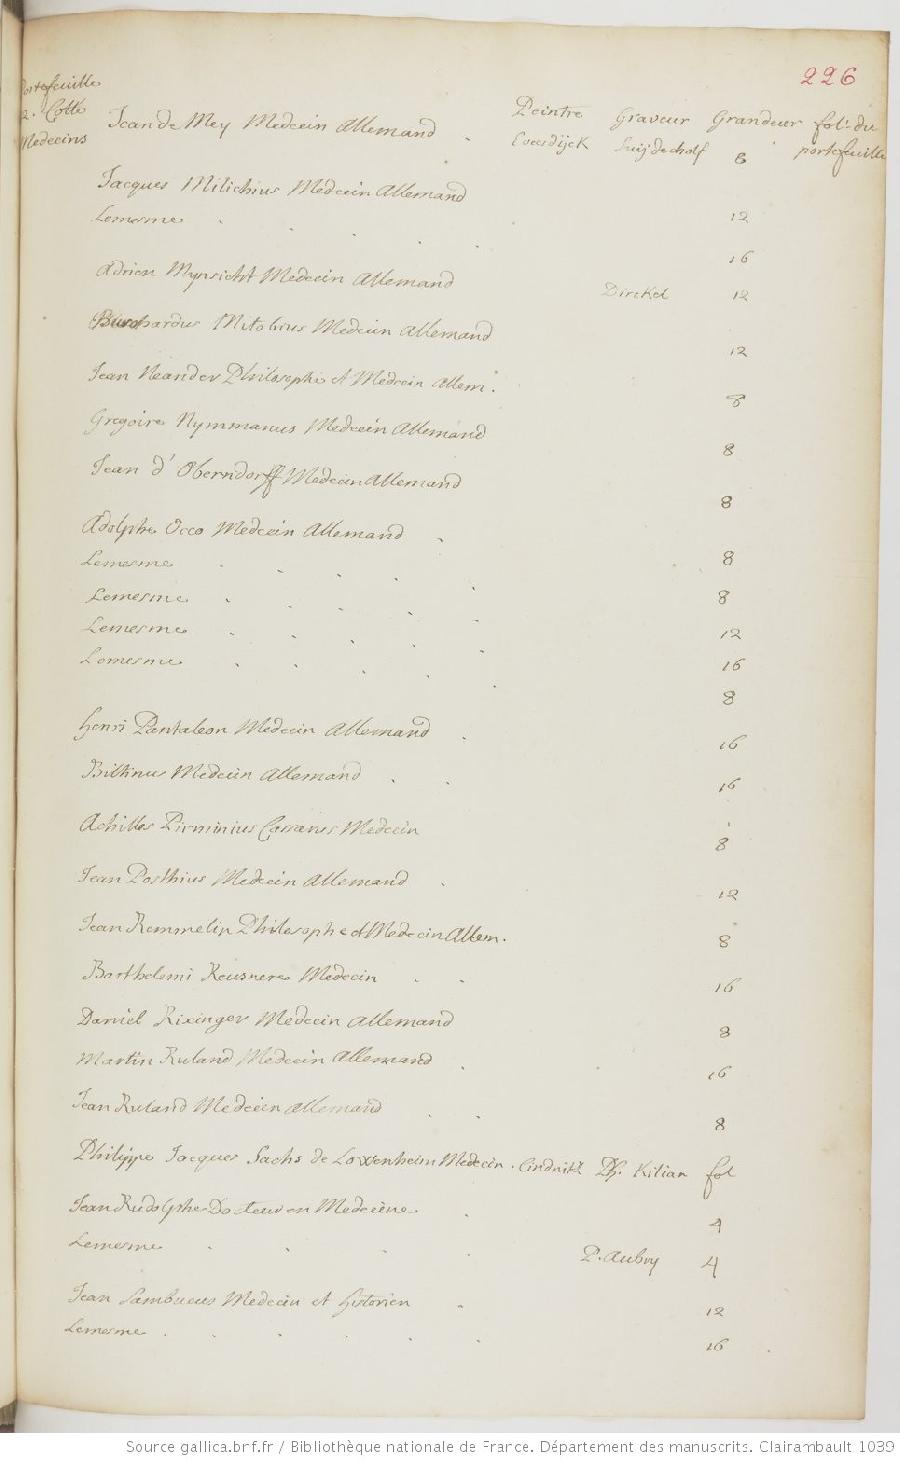 226
Portefeuille
2. Cotté
Medecins
Peintre Graveur Grandeur fol. du portefeuille
Jean de Mey Medecin Allemand . Eversdijck Suijderhoef 8
Jacques Milichius Medecin Allemand 12
Lemesme . . . . . 16
Adrien Mynsicht Medecin Allemand Dirckel 12
Burchardus Mitobius Medecin Allemand 12
Jean Neander Philosophe et Medecin Allem. 8
Gregoire Nymmanus Medecin Allemand 8
Jean d'Oberndorff Medecin Allemand 8
Adolphe Occo Medecin Allemand . 8
Lemesme . . . . . 8
Lemesme . . . . 12
Lemesme . . . . 16
Lemesme . . . . . 8
Henri Pantaleon Medecin Allemand . 16
Medecin Allemand . . 16
Achilles Pirminius Gassarus Medecin 8
Jean Posthius Medecin Allemand . 12
Jean Remmelin Philosophe et Medecin Allem. 8
Barthelemi Reusnere Medecin . . 16
Daniel Rixinger Medecin Allemand 8
Martin Ruland Medecin Allemand . 16
Jean Ruland Medecin Allemand . . 8
Philippe Jacques Sachs de Lowenheim Medecin . Ph. Kilian fol
Jean Rudolphe Docteur en Medecine . 4
Lemesme . . . . P. Aubry 4
Jean Sambucus Medecin et historien . 12
Lemesme . . . . . 16
Source gallica.bnf.fr / Bibliothèque nationale de France. Département des manuscrits. Clairambault 1039